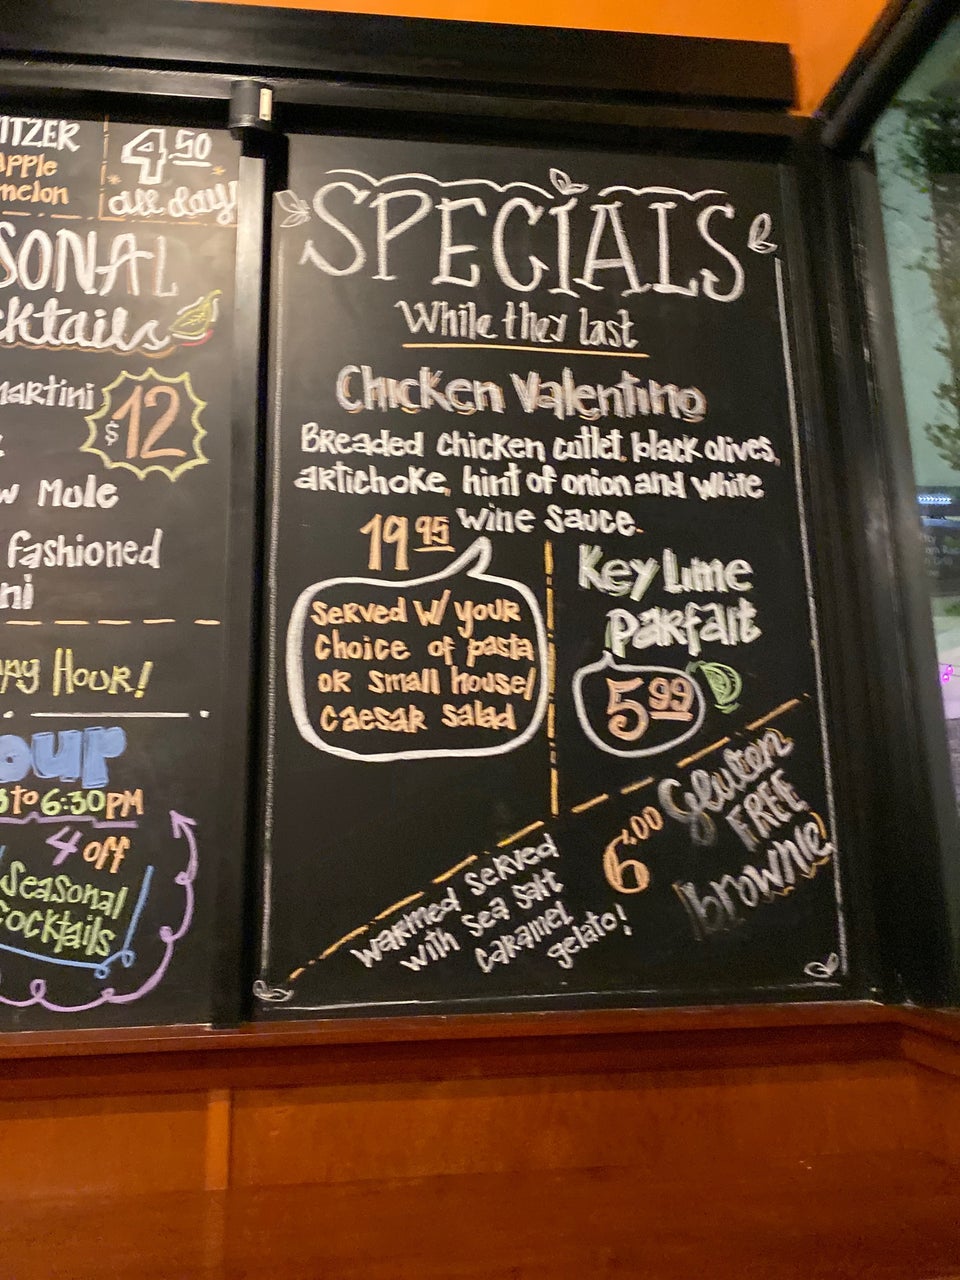 ITZER
APPle
melon
4.50
all day!
SONAL
cktails
martini
$12
w Mule
fashioned
ni
ppy Hour!
our
3 to 6:30PM
4 off
Seasonal
cocktails
SPECIALS
While they last
Chicken Valentino
Breaded chicken cutlet, black olives,
artichoke, hint of onion and white
wine sauce.
19.95
Served w/ your
Choice of pasta
or small house/
caesar salad
Key Lime
Parfait
5.99
Gluten
FREE
brownie
6.00
warmed served
with sea salt
caramel
gelato!